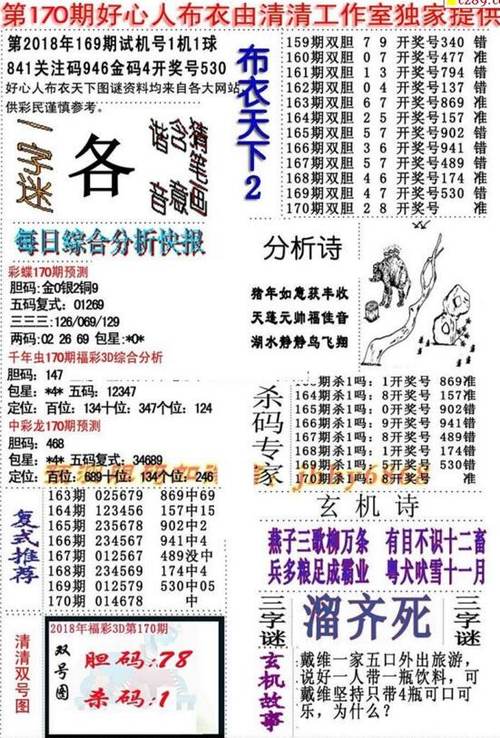 第170期好心人布衣由清清工作室独家提供
第2018年169期试机号1机1球
841关注码946金码4开奖号530
好心人布衣天下图谜资料均来自各大网站
供彩民谨慎参考。
布衣天下2
159期双胆 7 9 开奖号340 错
160期双胆 0 7 开奖号477 准
161期双胆 1 3 开奖号794 错
162期双胆 0 4 开奖号137 错
163期双胆 6 7 开奖号869 准
164期双胆 2 5 开奖号157 准
165期双胆 5 7 开奖号902 错
166期双胆 6 4 开奖号941 准
167期双胆 5 7 开奖号489 错
168期双胆 4 6 开奖号174 准
169期双胆 4 7 开奖号530 错
170期双胆 2 8 开奖号 准
一字谜
各
猜笔画
含意
谐音
每日综合分析快报
彩蝶170期预测
胆码:金0银2铜9
五码复式：01269
三三三:126/069/129
两码:02 26 69 包星:*0*
千年虫170期福彩3D综合分析
胆码：147
包星：*4* 五码：12347
定位：百位：134十位：347个位：124
中彩龙170期预测
胆码：468
包星：*4* 五码复式：34689
定位：百位：689十位：134个位：246
分析诗
猪年如意获丰收
天蓬元帅福佳音
湖水静静鸟飞翔
杀码专家
163期杀1吗：1开奖号 869准
164期杀1吗：8开奖号 157准
165期杀1吗：0开奖号 902错
166期杀1吗：9开奖号 941错
167期杀1吗：9开奖号 489错
168期杀1吗：3开奖号 174准
169期杀1吗：3开奖号 530错
170期杀1吗：8开奖号 准
复式推荐
163期 025679 869中69
164期 123456 157中15
165期 235678 902中2
166期 234579 941中4
167期 012567 489没中
168期 234569 174中4
169期 012579 530中05
170期 014678 中
玄机诗
燕子三歌柳万条 有目不识十二畜
兵多粮足成霸业 粤犬吠雪十一月
清清双号图
2018年福彩3D第170期
双号图
胆码:78
杀码:1
三字谜
溜齐死
三字谜
玄机故事
戴维一家五口外出旅游，
说好一人带一瓶饮料，可
戴维坚持只带4瓶可口可
乐，为什么？